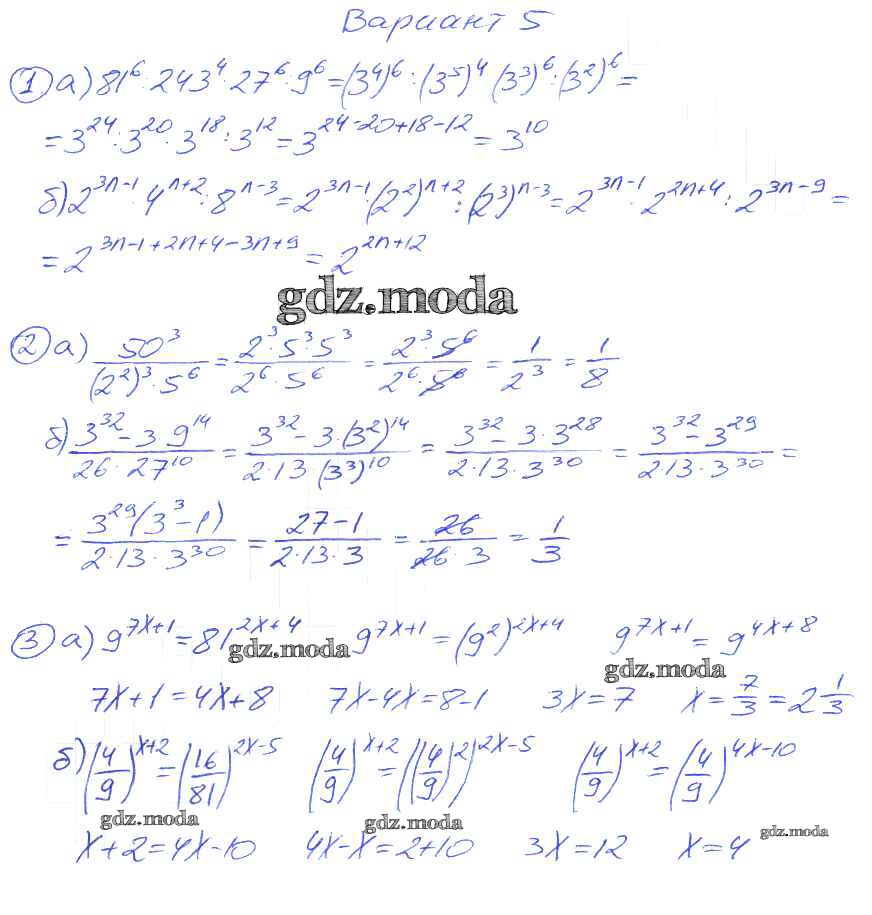 Вариант 5
① а) 81⁶ : 243⁴ · 27⁶ : 9⁶ = (3⁴)⁶ : (3⁵)⁴ (3³)⁶ : (3²)⁶ =
= 3²⁴ : 3²⁰ · 3¹⁸ : 3¹² = 3²⁴⁻²⁰⁺¹⁸⁻¹² = 3¹⁰
б) 2³ⁿ⁻¹ · 4ⁿ⁺² : 8ⁿ⁻³ = 2³ⁿ⁻¹ · (2²)ⁿ⁺² : (2³)ⁿ⁻³ = 2³ⁿ⁻¹ · 2²ⁿ⁺⁴ : 2³ⁿ⁻⁹ =
= 2³ⁿ⁻¹⁺²ⁿ⁺⁴⁻³ⁿ⁺⁹ = 2²ⁿ⁺¹²
gdz.moda
② а) 50³/((2²)³ · 5⁶) = (2³ · 5³ · 5³)/(2⁶ · 5⁶) = (2³ · 5⁶)/(2⁶ · 5⁶) = 1/2³ = 1/8
б) (3³² - 3 · 9¹⁴)/(26 · 27¹⁰) = (3³² - 3 · (3²)¹⁴)/(2 · 13 · (3³)¹⁰) = (3³² - 3 · 3²⁸)/(2 · 13 · 3³⁰) = (3³² - 3²⁹)/(2 · 13 · 3³⁰) =
= 3²⁹(3³ - 1)/(2 · 13 · 3³⁰) = (27 - 1)/(2 · 13 · 3) = 26/(26 · 3) = 1/3
③ а) 9^(7x+1) = 81^(2x+4) 9^(7x+1) = (9²)^(2x+4) 9^(7x+1) = 9^(4x+8)
gdz.moda gdz.moda
7x+1 = 4x+8 7x-4x = 8-1 3x = 7 x = 7/3 = 2 1/3
б) (4/9)^(x+2) = (16/81)^(2x-5) (4/9)^(x+2) = ((4/9)²)^(2x-5) (4/9)^(x+2) = (4/9)^(4x-10)
gdz.moda gdz.moda gdz.moda
x+2 = 4x-10 4x-x = 2+10 3x = 12 x = 4